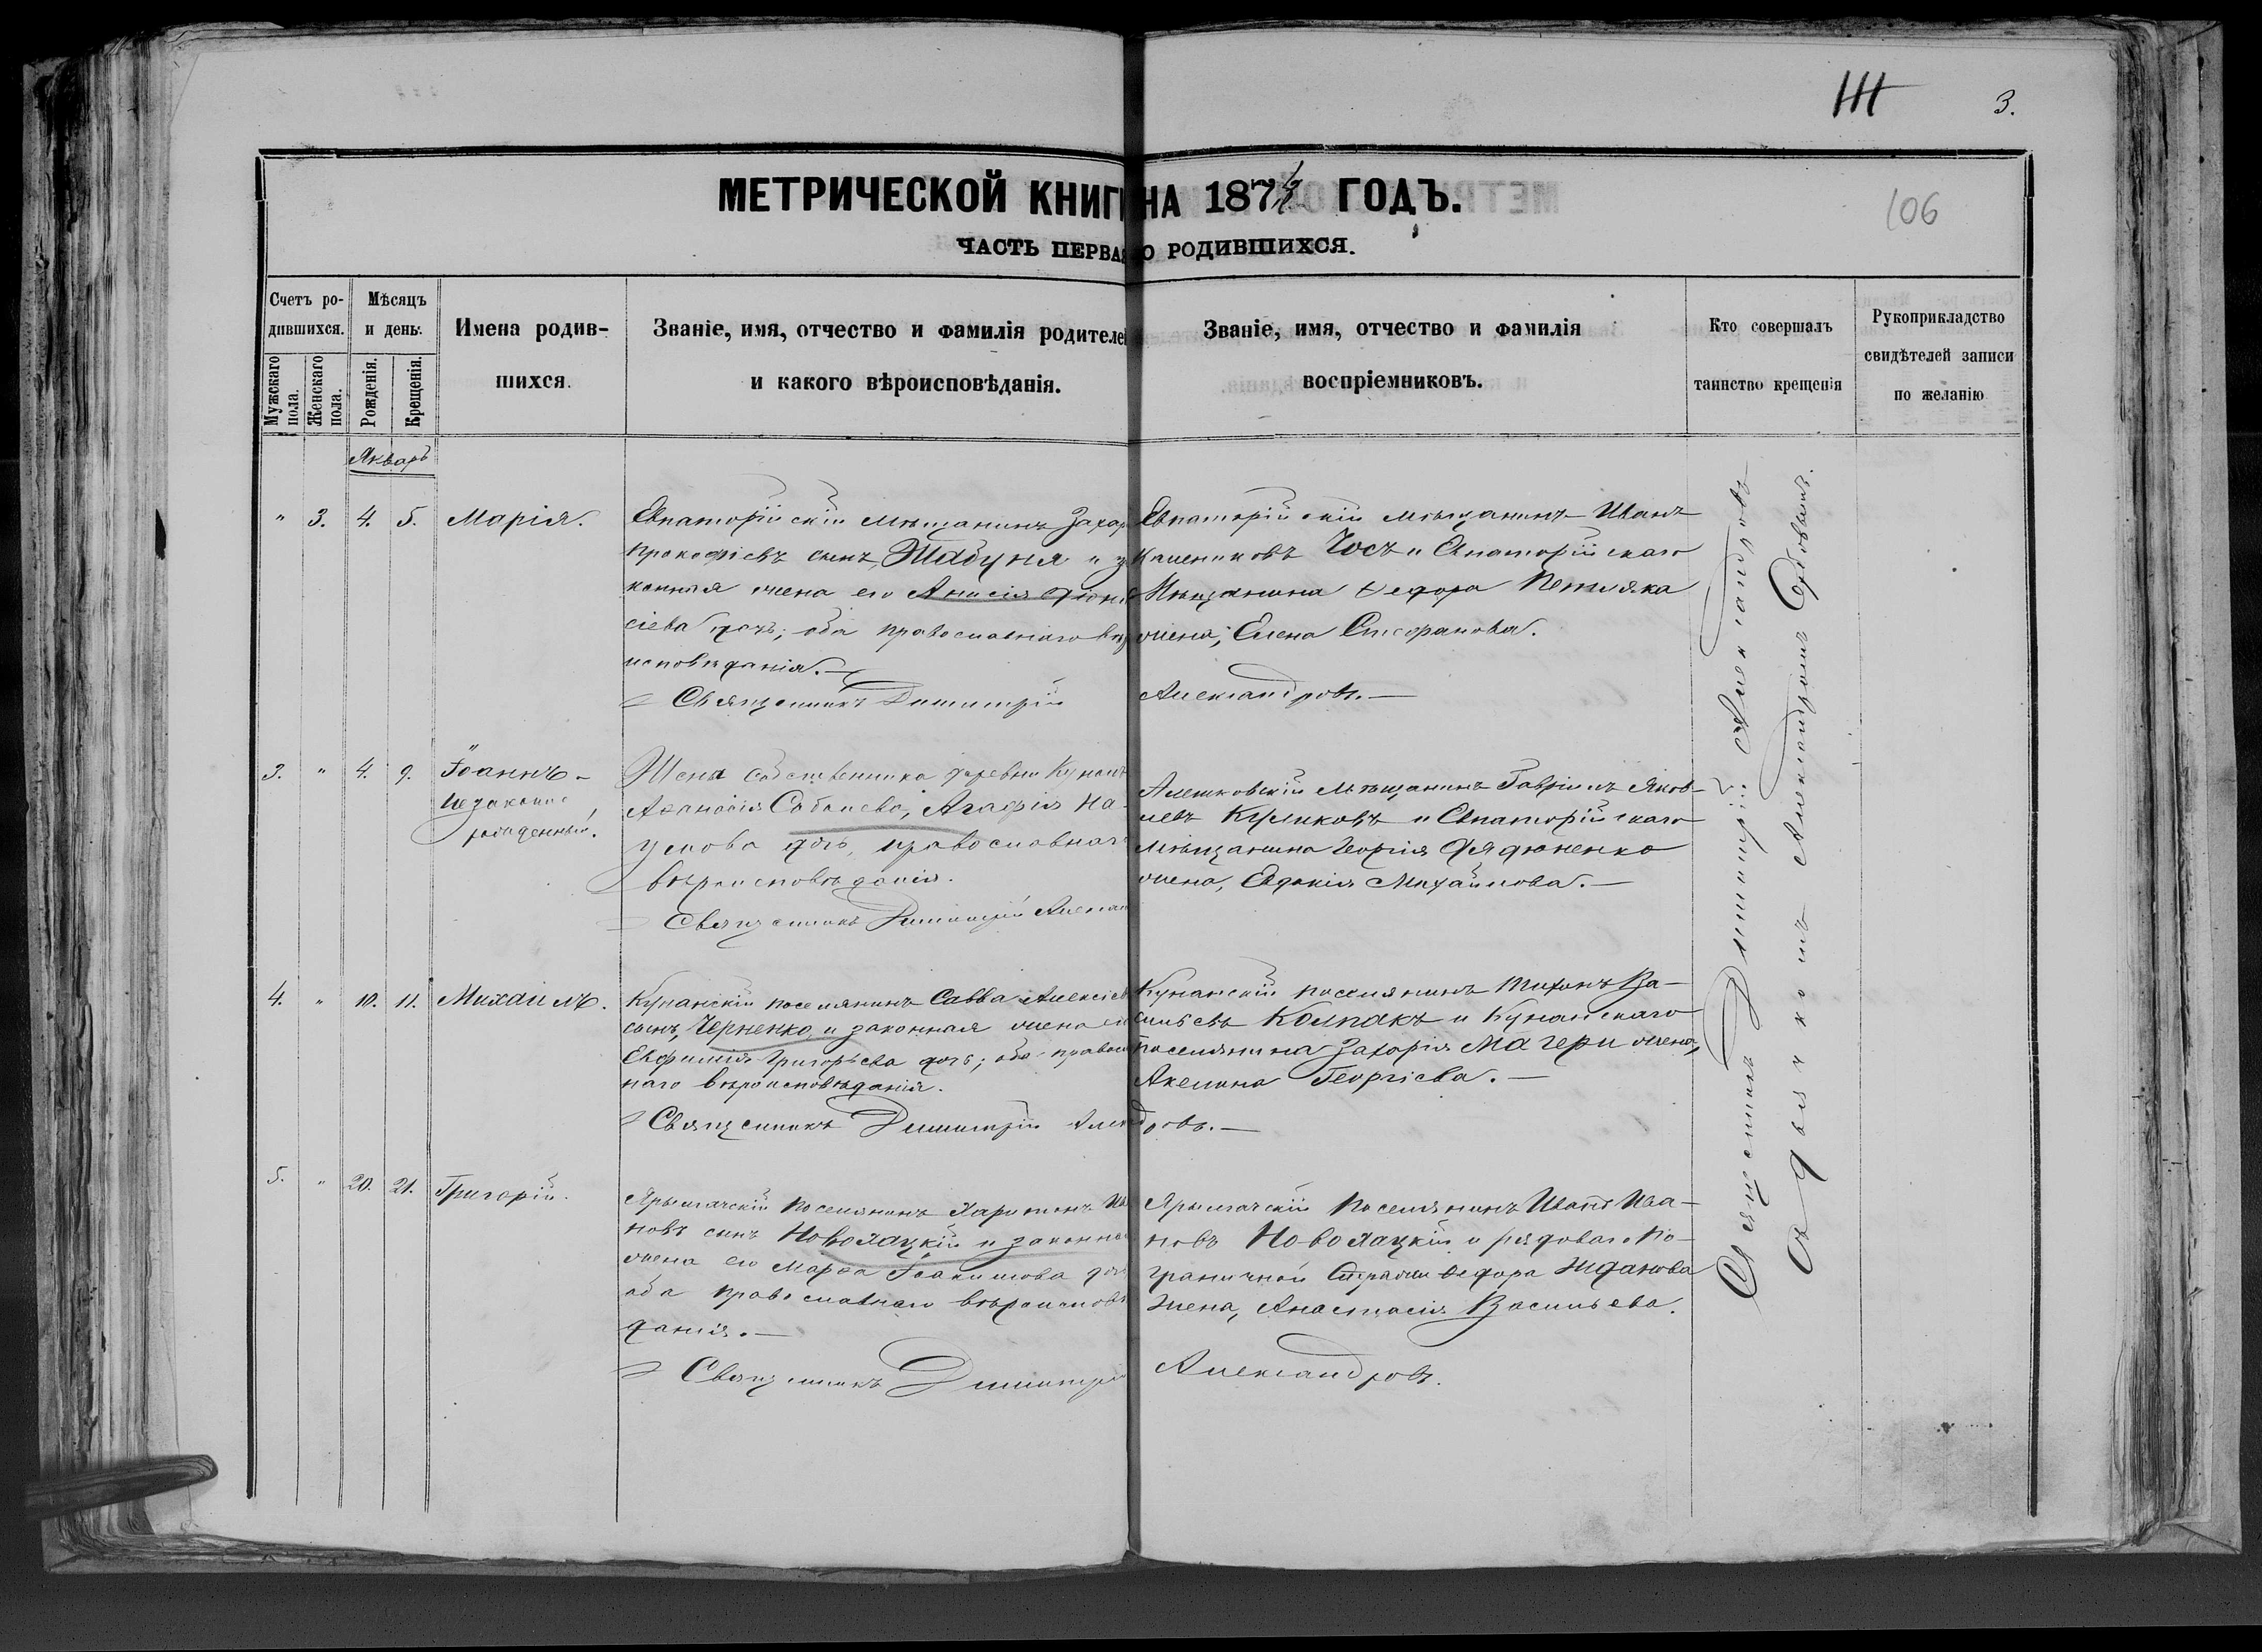 3.
МЕТРИЧЕСКОЙ КНИГ НА 187 ГОДЪ.
106
ЧАСТЬ ПЕРВАЯ О РОДИВШИХСЯ.
Счетъ ро-
дившихся.
Мужскаго пола.
Женскаго пола.
Мѣсяцъ
и день.
Рожденія.
Крещенія.
Имена родив-
шихся.
Званіе, имя, отчество и фамилія родителей
и какого вѣроисповѣданія.
Званіе, имя, отчество и фамилія
воспріемниковъ.
Кто совершалъ
таинство крещенія
Рукоприкладство
свидѣтелей записи
по желанію
Январь
" 3. 4. 5. Марія.
Евпаторійскій мѣщанинъ Захар
Прокофіевъ сынъ, Шабуня и за
конная жена его Анисія Діони
сіева дочь; оба православнаго вѣро
исповѣданія.
Священникъ Димитрій
Евпаторійскій мѣщанинъ Иванъ
Чосъ и Евпаторійскаго
Мѣщанина Ѳедора Петляка
жена, Елена Стефанова.
Александровъ.
3. " 4. 9. Іоаннъ
незаконно
рожденный.
Жена собственника деревни Кунанъ
Аѳанасія Соболева, Агафія На-
умова дочь, православнаго
вѣроисповѣданія.
Священникъ Димитрій Алексан
Алешковскій мѣщанинъ Гавріилъ Яков-
левъ Куликовъ и Евпаторійскаго
мѣщанина Георгія Дядюненко
жена, Евдокія Михайлова.
4. " 10. 11. Михаилъ.
Кунанскій поселянинъ Савва Алексіевъ
сынъ, Черненко, и законная жена его
Евфимія Григорьева дочь; оба правосл
наго вѣроисповѣданія.
Священникъ Димитрій Алек
Кунанскій поселянинъ Тихонъ Ва-
сильевъ Колпакъ и Кунанскаго
поселянина Захарія Магери жена,
Акелина Георгіева.
дровъ.
5. " 20. 21. Григорій.
Ярылгачскій поселянинъ Харитонъ Ива
новъ сынъ Новохацкій и законная
жена его Марѳа Іоакимова дочь
оба православнаго вѣроисповѣ
данія.
Священникъ Димитрій
Ярылгачскій Поселянинъ Иванъ Ива-
новъ Новохацкій и рядоваго По-
граничной Стражи Ѳедора Жданова
жена, Анастасія Васильева.
Александровъ.
Священникъ Димитрій Александровъ
съ дьячкомъ Александромъ